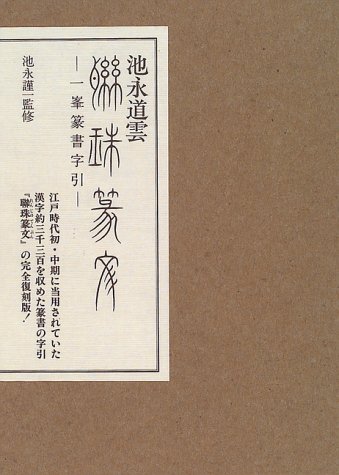 池永道雲
聯珠篆文
―一峯篆書字引―
池永謹一監修
江戸時代初・中期に当用されていた
漢字約三千三百を収めた篆書の字引
『聯珠篆文』の完全復刻版!